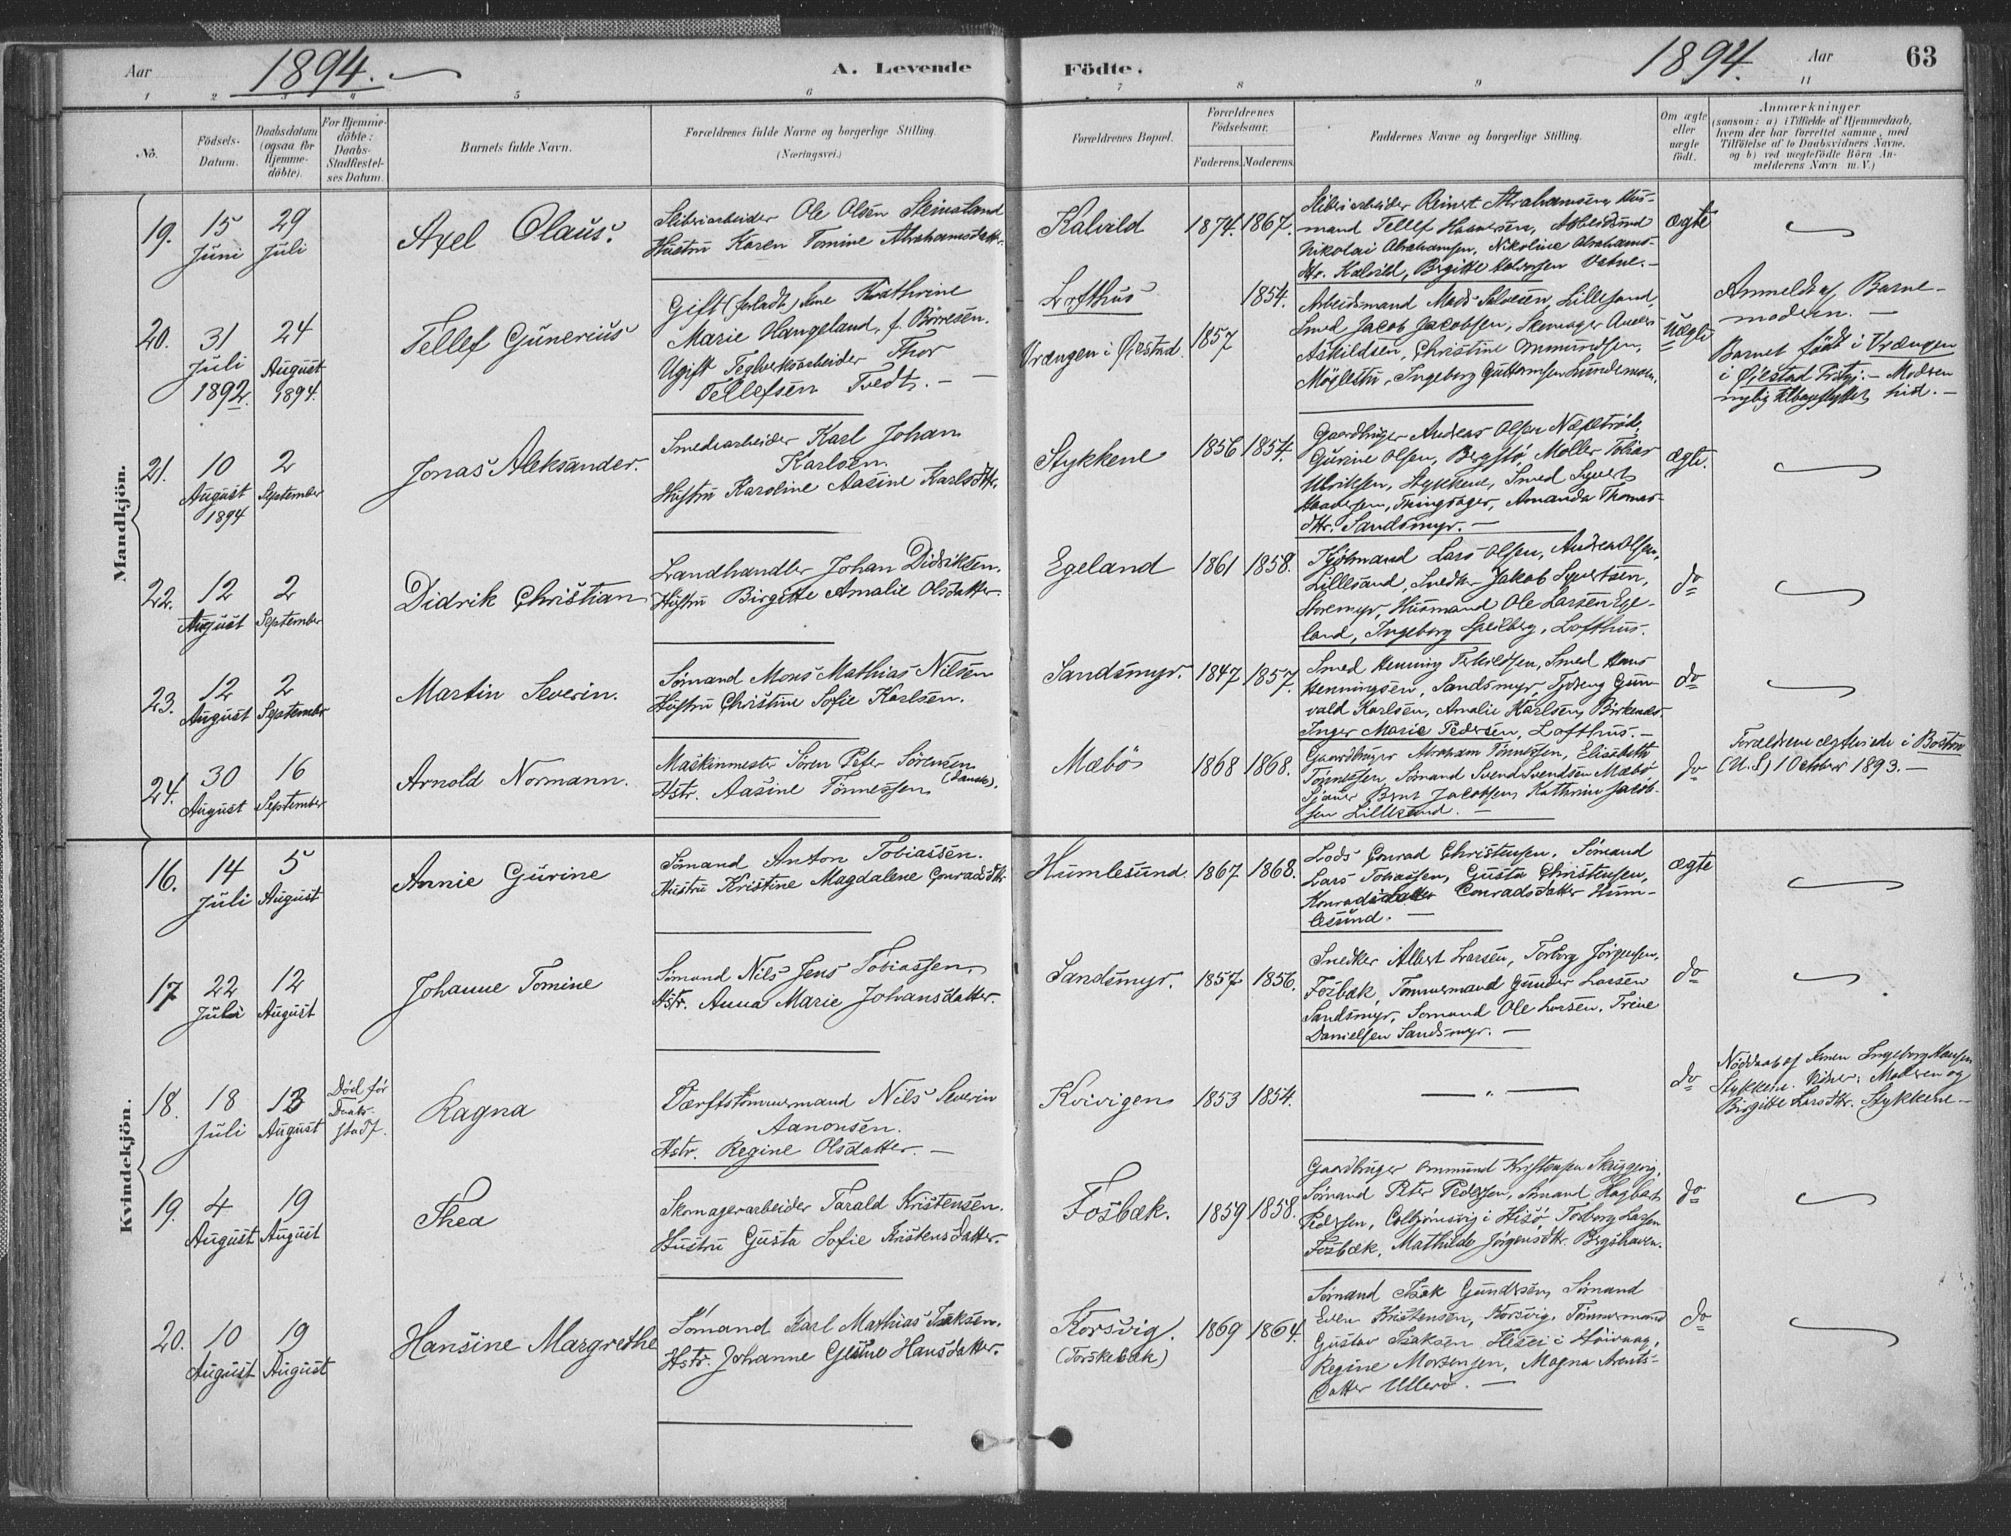 Aar 1894. A. Levende Fødte. 1894. Aar 63
1 2 3 4 5 6 7 8 9 11
No.
Födsels-
Datum.
Daabsdatum
(ogsaa for
Hjemme-
döbte).
For Hjemme-
döbte:
Daabs-
Stadfæstel-
ses Datum.
Barnets fulde Navn.
Forældrenes fulde Navne og borgerlige Stilling.
(Næringsvei.)
Forældrenes Bopæl.
Forældrenes
Födselsaar.
Faderens. Moderens.
Faddernes Navne og borgerlige Stilling.
Om ægte
eller
uægte
født.
Anmærkninger
(saasom: a) i Tilfælde af Hjemmedaab,
hvem der har forrettet samme, med
Tilföielse af to Daabsvidners Navne,
og b) ved uægtefödte Börn An-
melderens Navn m. V.)
Mandkjön.
19.
15
Juni
29
Juli
Axel Olaus.
Sliberiarbeider Ole Olsen Steinsland
Hustru Karen Tomine Abrahamsdatter.
Kalvild
1874. 1867.
Sliberiarbeider Reinert Abrahamsen, Hus-
mand Tellef
Nikolai Abrahamsen, Nikoline Abrahams-
dtr. Kalvild, Birgitte Halvorsen
ægte
20.
31
Juli
1892.
24
August
1894.
Tellef Gunerius
Gift (forladt) Kathrine
Marie Haugeland, f. Børresen.
Ugift Teglverksarbeider Thor
Tellefsen Tvedt. —
Lofthus
Vrængen i Øiestad.
1854.
1857
Arbeidsmand Mads Salvesen, Lillesand,
Smed Jacob Jacobsen, Skomager Anders
Askildsen, Christine Ommundsen,
Møglestu, Ingeborg
Uægte
Anmeldt af Barne-
moderen. —
Barnet født i Vrængen
i Øiestad — Modren
nylig tilbageflyttet hid. —
21.
10
August
1894
2
September
Jonas Aleksander.
Smedearbeider Karl Johan
Karlsen
Hustru Karoline Aasine Karlsdtr.
Stykkene
1856 1854.
Gaardbruger Andreas Olsen
Gurine Olsen, Bergstø, Møller Tobias
Ulriksen, Stykkene, Smed Syvert
Tingsager, Amanda Thomas-
dtr. Sandsmyr. —
ægte.
22.
12
August
2
September
Didrik Christian
Landhandler Johan Didriksen.
Hustru Birgitte Amalie Olsdatter.
Egeland
1861 1858.
Lars Olsen, Andrea Olsen,
Lillesand, Snedker Jakob Syvertsen,
Storemyr, Husmand Ole Larsen Ege-
land, Ingeborg Lofthus.
do
23.
12
August
2
September
Martin Severin.
Sømand Mons Mathias Nilsen
Hustru Christine Sofie Karlsen.
Sandsmyr.
1847 1857.
Smed Henning Terkildsen, Smed Hans
Henningsen, Sandsmyr, Gun-
vald Karlsen, Amalie Karlsen,
Inger Marie Pedersen, Lofthus. —
do
24.
30
August
16
September
Arnold Normann.
Maskinmester Søren Peter Sørensen
(dansk).
Hstr. Aasine Tønnessen
Mæbø
1868 1868.
Gaardbruger Abraham Tønnessen, Elisabeth
Tønnessen, Sømand Svend Svendsen Mæbø
Bent Jacobsen, Kathrine Jacob-
sen Lillesand. —
do
Forældrene ægteviede i Boston
(U.S) 1 October 1893. —
Kvindekjön.
16.
14
Juli
5
August
Annie Gurine
Sømand Anton Tobiassen.
Hustru Kristine Magdalene Conradsdtr
Humlesund.
1867 1868.
Lods Conrad Christensen, Sømand
Lars Tobiassen, Gusta Christensen,
Conradsdatter Hum-
lesund. —
ægte
17
22
Juli
12
August
Johanne Tomine
Sømand Nils Jens Tobiassen,
Hstr. Anna Marie Johansdatter.
Sandsmyr.
1857 1856.
Snedker Albert Larsen, Torborg Jörgensen,
Fosbæk, Tømmermand Gunder Larsen
Sandsmyr, Sømand Ole Larsen, Trine
Danielsen Sandsmyr. —
do
18.
18
Juli
13
August
Död før
Daabs-
stadf.
Ragna
Værftstømmermand Nils Severin
Aanonsen.
Hstr. Regine Olsdatter. —
Kvivigen
1853 1854.
— „ —
do
Nøddaab af Ingeborg Hansen
Stykkene. Vidner: Moderen og
Birgitte Larsdtr. Stykkene —
19.
4
August
19
August
Thea
Skomagerarbeider Tarald Kristensen.
Hustru Gusta Sofie Kristensdatter.
Fosbæk.
1859 1858.
Gaardbruger Ommund Kristensen
Sømand Peter Pedersen, Sømand Hagbart
Pedersen, Colbjørnsvig i Hisø, Torborg Larsen
Fosbæk, Mathilde Jörgensdtr. Bergshaven.
do
20.
10
August
19
August
Hansine Margrethe
Sömand Karl Mathias Isaksen.
Hstr. Johanne Gesine Hansdatter.
Korsvig.
(Torskebæk)
1869 1864.
Sømand Isak Gundersen, Sømand
Even Kristensen, Korsvig, Tømmermand
Gustav Isaksen i Høivaag,
Regine Mortensen, Magna Arents-
datter Ullerø. —
do